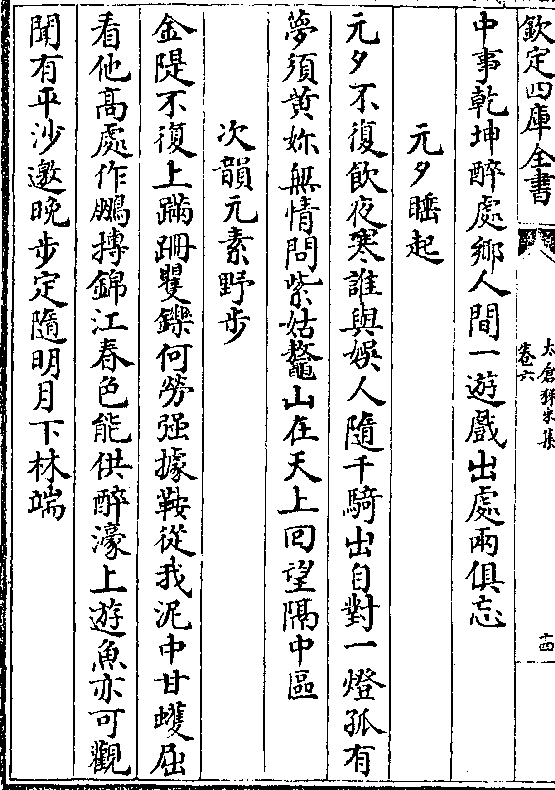 欽定四庫全書
太倉稊米集
卷六
十四
中事乾坤醉處鄉人間一遊戲出處兩俱忘
元夕睡起
元夕不復飲夜寒誰與娛人隨千騎出自對一燈孤有
夢須黄妳無情問紫姑鼇山在天上回望隔中區
次韻元素野步
金隄不復上蹣跚矍鑠何勞强據鞍從我泥中甘蠖屈
看他髙處作鵬摶錦江春色能供醉濠上遊魚亦可觀
聞有平沙邀晚步定隨明月下林端